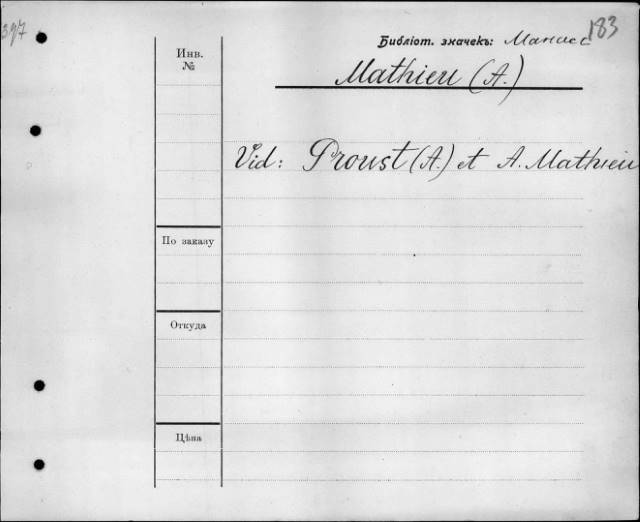 397
183
Библіот. значекъ: Манасс
Инв.
№
Mathieu (A.)
Vid: Proust (A.) et A. Mathieu
По заказу
Откуда
Цѣна